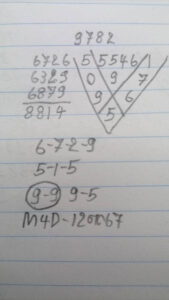 9782
6726 5 5546 1
6329 0 9 7
6879 9 6
8814 5
6-7-2-9
5-1-5
9-9 9-5